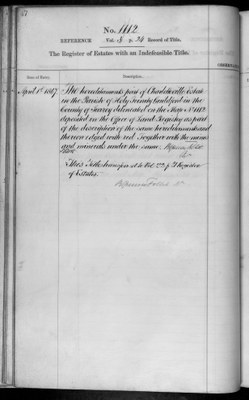 67
No. 1112
REFERENCE Vol. 8 p. 34 Record of Title.
The Register of Estates with an Indefeasible Title.
Date of Entry. Description.
April 1st 1867 The hereditaments part of Charlotteville Estate
in the Parish of Holy Trinity Guildford in the
County of Surrey delineated on the Map No 1112
deposited in the Office of Land Registry as part
of the description of the same hereditaments and
thereon edged with red Together with the mines
and minerals under the same.
This Title transferred to Vol. of Register
of Estates.